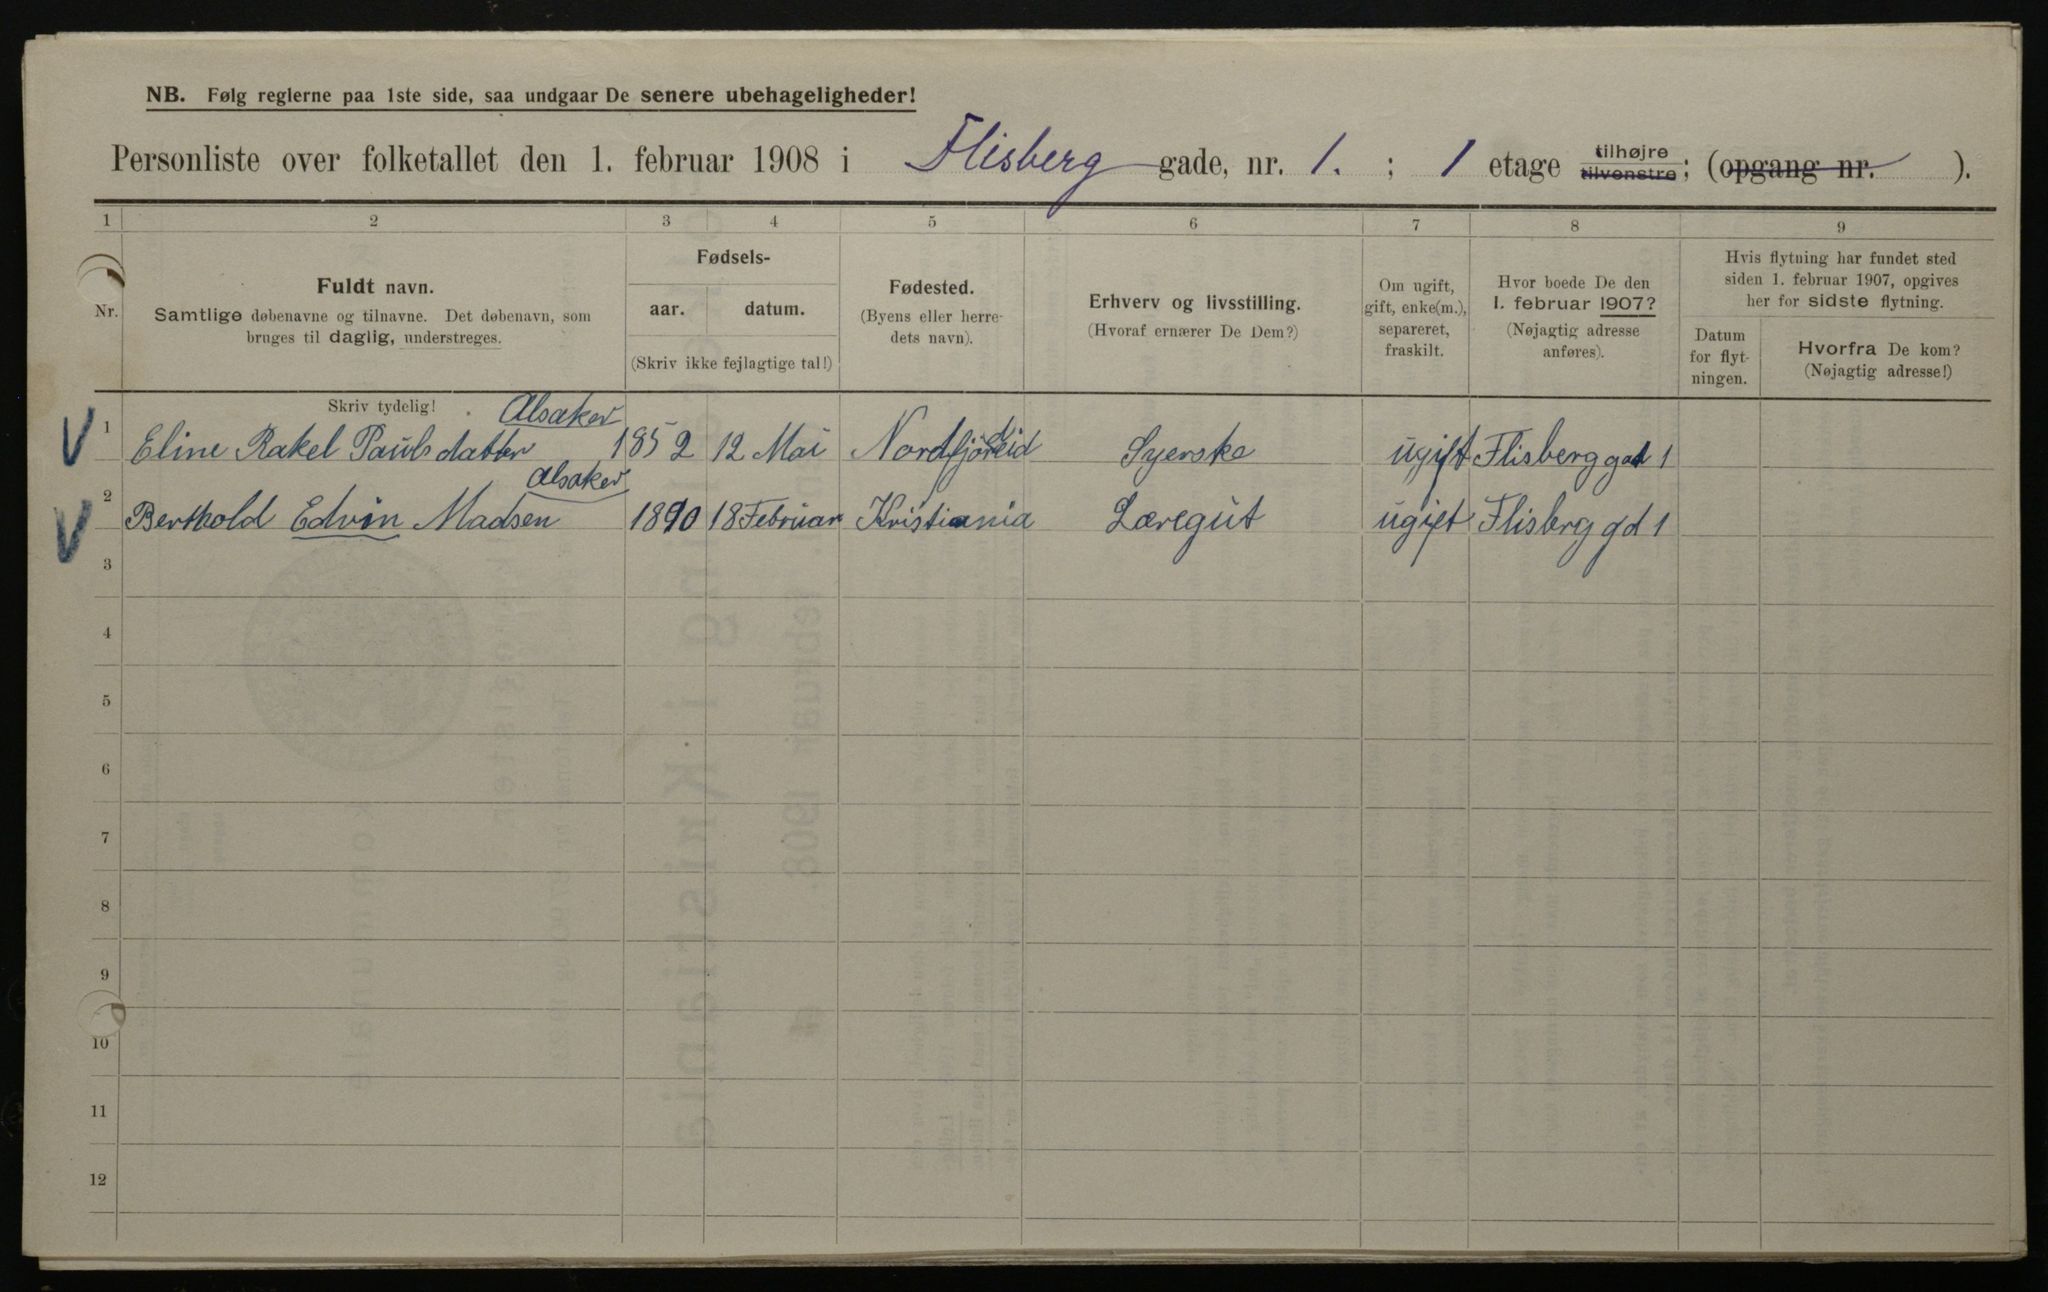 NB. Følg reglerne paa 1ste side, saa undgaar De senere ubehageligheder!
Personliste over folketallet den 1. februar 1908 i Flisberg gade, nr. 1. ; 1 etage tilhøjre tilvenstre; (opgang nr. ).
1 2 3 4 5 6 7 8 9
Nr.
Fuldt navn.
Samtlige døbenavne og tilnavne. Det døbenavn, som
bruges til daglig, understreges.
Skriv tydelig!
Fødsels-
aar. datum.
(Skriv ikke fejlagtige tal!)
Fødested.
(Byens eller herre-
dets navn).
Erhverv og livsstilling.
(Hvoraf ernærer De Dem?)
Om ugift,
gift, enke(m.),
separeret,
fraskilt.
Hvor boede De den
1. februar 1907?
(Nøjagtig adresse
anføres).
Hvis flytning har fundet sted
siden 1. februar 1907, opgives
her for sidste flytning.
Datum
for flyt-
ningen.
Hvorfra De kom?
(Nøjagtig adresse!)
Alsaker
1 Eline Rakel Paulsdatter 1852 12 Mai Nordfjordeid Syerske ugift Flisberg gad 1
Alsaker
2 Berthold Edvin Madsen 1890 18 Februar Kristiania Læregut ugift Flisberg gd 1
3
4
5
6
7
8
9
10
11
12